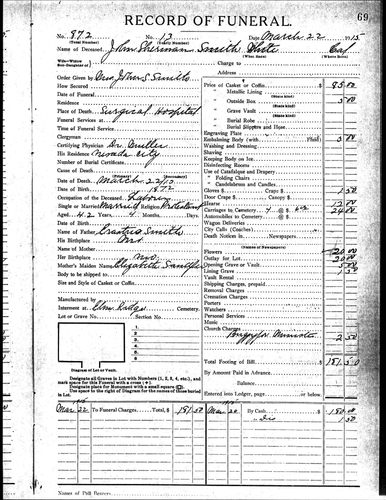 69
RECORD OF FUNERAL.
No. 872 No. 13 Date March 22 1915
(Total Number) (Yearly Number)
Name of Deceased John Sherman Smith White Cal
(What Race) (Where Born)
Charge to
Address
Order Given by Mrs John S. Smith
How Secured
Date of Funeral
Residence
Place of Death Surgical Hospital
Funeral Services at
Time of Funeral Service
Clergyman
Certifying Physician Dr.
His Residence Nevada City
Number of Burial Certificate
Cause of Death
Date of Death March 22/15
Date of Birth 1872
Occupation of the Deceased Laborer
Single or Married Married Religion Protestant
Aged 42 Years 4 Months Days
Name of Father Smith
His Birthplace Mo
Name of Mother
Her Birthplace Mo
Mother's Maiden Name Elizabeth
Body to be shipped to
Size and Style of Casket or Coffin
Manufactured by
Interment at Elm Ridge Cemetery.
Lot or Grave No. Section No.
Diagram of Lot or Vault.
Designate all Graves in Lot with Numbers (1, 2, 3, 4, etc.), and
mark space for this Funeral with a cross (+).
Designate place for Monument with a small square
Use space to the right of Diagram for the names of those buried
in Lot.
Price of Casket or Coffin $ 85.00
" Metallic Lining
" Outside Box 5 00
" Grave Vault
" Burial Robe
" Burial Slippers and Hose
Engraving Plate
Embalming Body (with Fluid)
Washing and Dressing
Shaving
Keeping Body on Ice
Disinfecting Rooms
Use of Catafalque and Drapery
" Folding Chairs
" Candelabrum and Candles
Gloves $ Crape $ 1 50
Door Crape $ Canopy $
Hearse 12.00
Carriages to Cemetery 4 @ $ 6.00 24.00
Automobiles to Cemetery @ $
Wagon Deliveries
City Calls (Coaches)
Death Notices in
(Names of Newspapers)
Flowers 20 00
Outlay for Lot 20 00
Opening Grave or Vault
Lining Grave 1 50
Vault Rental
Shipping Charges, prepaid
Removal Charges
Cremation Charges
Porters
Watchers
Personal Services
Music
Church Charges
Buggy for Minister 2 50
Total Footing of Bill $ 181.50
By Amount Paid in Advance
Balance
Entered into Ledger, page or below.
Mar 22 To Funeral Charges, Total, $ 181.50 Mar 20 By Cash $ 180.00
" Dis 1 50
Names of Pall Bearers